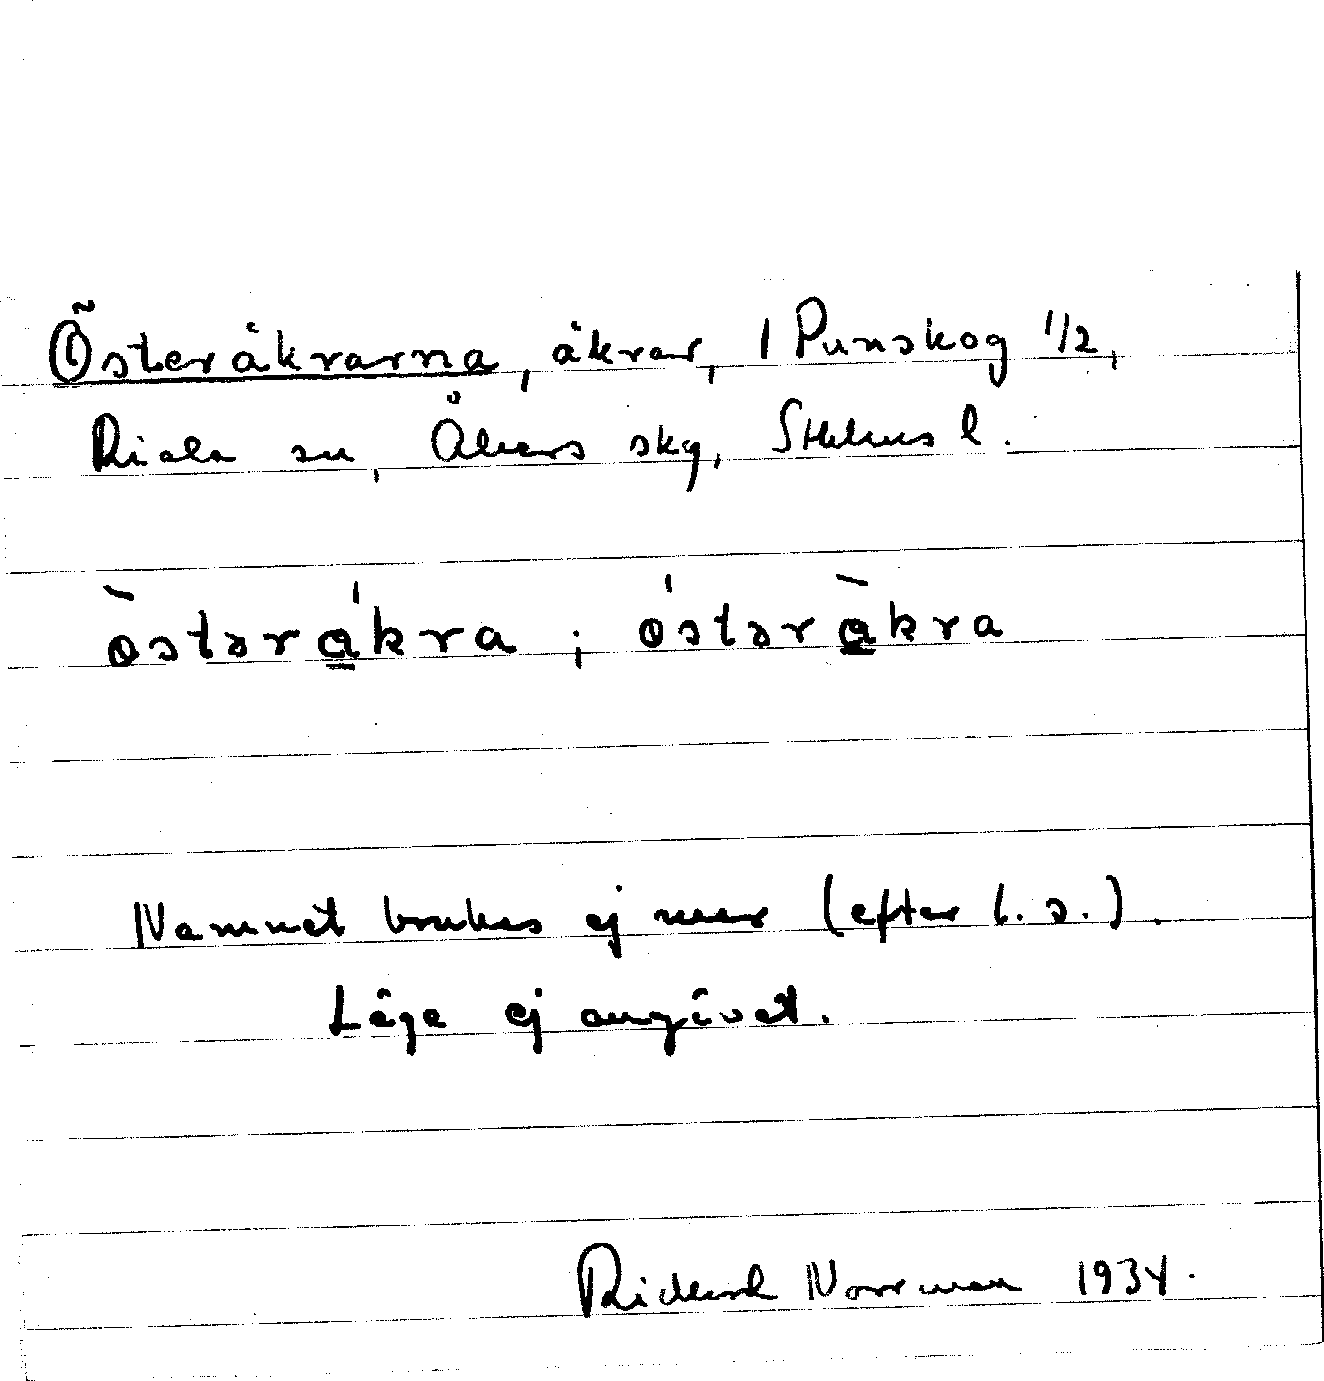 Österåkrarna, åkrar, 1 Punskog 1/2,
Riala sn, Åkers skg, Sthlms l.
ò̀stəra̲̍kra ; ó̍stərà̲kra
Namnet brukas ej mer (efter l. s.).
Läge ej angivet.
Rickard Norrman 1934.